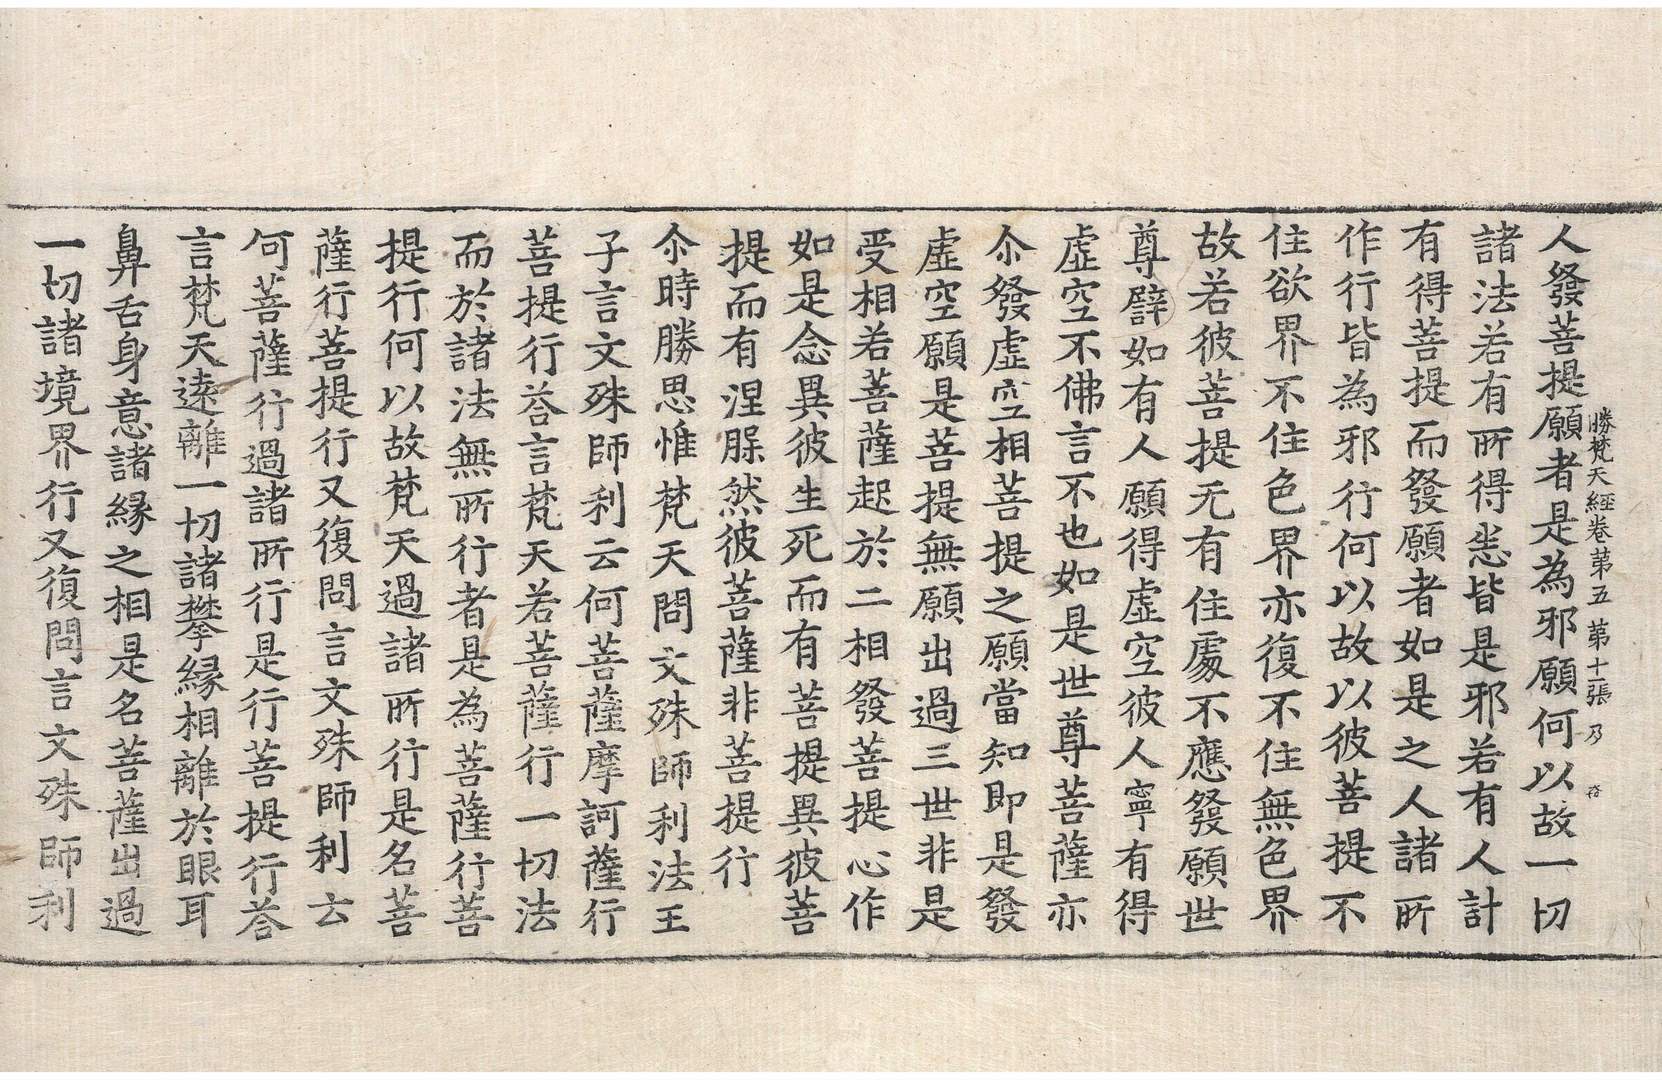 勝梵天經卷苐五 苐十一張 乃
人發菩提願者是為邪願何以故一切
諸法若有所得悉皆是邪若有人計
有得菩提而發願者如是之人諸所
作行皆為邪行何以故以彼菩提不
住欲界不住色界亦復不住無色界
故若彼菩提无有住處不應發願世
尊譬如有人願得虛空彼人寧有得
虛空不佛言不也如是世尊菩薩亦
尒發虛空相菩提之願當知即是發
虛空願是菩提無願出過三世非是
受相若菩薩起於二相發菩提心作
如是念異彼生死而有菩提異彼菩
提而有涅槃然彼菩薩非菩提行
尒時勝思惟梵天問文殊師利法王
子言文殊師利云何菩薩摩訶薩行
菩提行荅言梵天若菩薩行一切法
而於諸法無所行者是為菩薩行菩
提行何以故梵天過諸所行是名菩
薩行菩提行又復問言文殊師利云
何菩薩行過諸所行是行菩提行荅
言梵天遠離一切諸攀緣相離於眼耳
鼻舌身意諸緣之相是名菩薩出過
一切諸境界行又復問言文殊師利